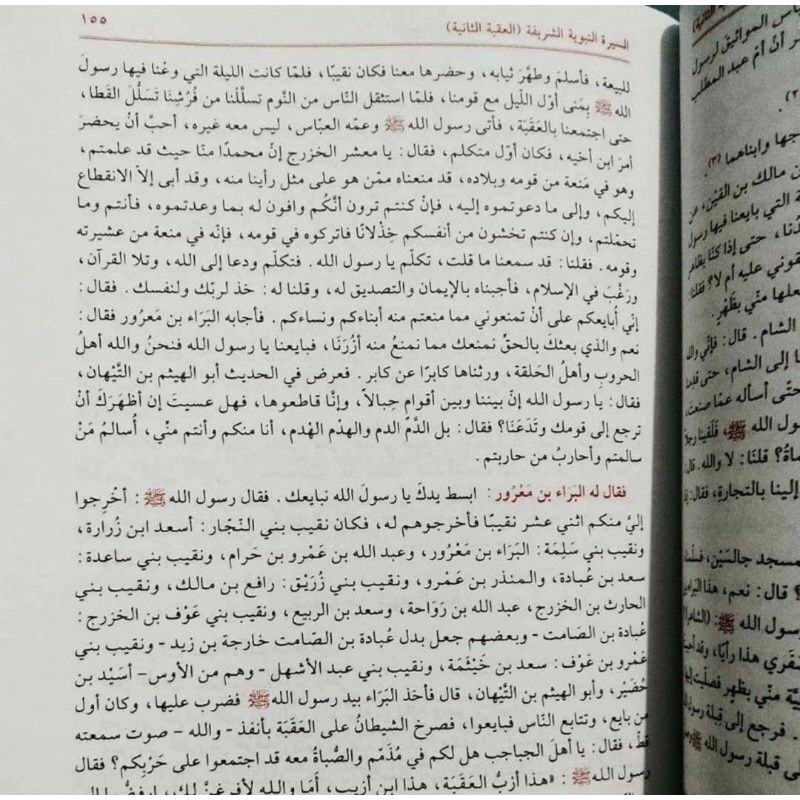 السيرة النبوية الشريفة (العقبة الثانية)
١٥٥
للبيعة، فأسلمَ وطهَّرَ ثيابه، وحضرها معنا فكان نقيبًا، فلمّا كانت الليلة التي وعْنا فيها رسولَ
الله ﷺ بِمَنى أوّل اللّيل مع قومنا، فلمّا استثقل النّاس من النَّوم تسلّلْنا من فُرُشِنا تَسَلُّلَ القَطا،
حتى اجتمعنا بالعَقَبَة، فأتى رسول الله ﷺ وعمّه العبّاس، ليس معه غيره، أحبَّ أنْ يحضرَ
أمرَ ابن أخيه، فكان أوّل متكلم، فقال: يا معشر الخزرج إنّ محمدًا منّا حيث قد علمتم،
وهو في مَنعة من قومه وبلاده، قد منعناه ممّن هو على مثل رأينا منه، وقد أبى إلاّ الانقطاع
إليكم، وإلى ما دعوتموه إليه، فإنْ كنتم ترون أنَّكُم وافون له بما وعدتموه، فأنتم وما
تحمّلتم، وإن كنتم تخشون من أنفسكم خِذْلانًا فاتركوه في قومه، فإنّه في منعة من عشيرته
وقومه. فقلنا: قد سمعنا ما قلت، تكلّم يا رسول الله. فتكلّم ودعا إلى الله، وتلا القرآن،
ورغَّبَ في الإسلام، فأجبناه بالإيمان والتصديق له، وقلنا له: خذ لربّك ولنفسك. فقال:
إنّي أُبايعكم على أنْ تمنعوني مما منعتم منه أبناءكم ونساءكم. فأجابه البَرَاء بن مَعرُور فقال:
نعم والذي بعثكَ بالحقِّ نمنعك مما نمنعُ منه أزُرَنَا، فبايعنا يا رسول الله فنحنُ والله أهلُ
الحروبِ وأهلُ الحَلقة، ورثناها كابرًا عن كابر. فعرض في الحديث أبو الهيثم بن التَّيْهان،
فقال: يا رسول الله إنّ بيننا وبين أقوام حِبالاً، وإنَّا قاطعوها، فهل عسيتَ إن أظهَرَكَ أنْ
ترجع إلى قومك وتَدَعَنَا؟ فقال: بل الدَّمُ الدم والهدْم الهْدم، أنا منكم وأنتم منّي، أُسالمُ مَنْ
سالمتم وأحاربُ من حاربتم.
فقال له البَرَاء بن مَعْرُور: ابسط يدكَ يا رسولَ الله نبايعك. فقال رسول الله ﷺ: أخْرِجوا
إليَّ منكم اثني عشر نقيبًا فأخرجوهم له، فكان نقيب بني النّجّار: أسعد ابن زُرارة،
ونقيب بني سَلِمَة: البَرَاء بن مَعْرُور، وعبد الله بن عَمْرو بن حَرام، ونقيب بني ساعدة:
سعد بن عُبادة، والمنذر بن عَمْرو، ونقيب بني زُرَيْق: رافع بن مالك، ونقيب بني
الحارث بن الخزرج، عبد الله بن رَوَاحة، وسعد بن الربيع، ونقيب بني عَوْف بن الخزرج:
عُبادة بن الصامت - وبعضهم جعل بدل عُبادة بن الصّامت خارجة بن زيد - ونقيب بني
عَمْرو بن عَوْف: سعد بن خَيْثَمة، ونقيب بني عبد الأشهل - وهم من الأوس- أسَيْد بن
حُضَيْر، وأبو الهيثم بن التَّيْهان، قال فأخذ البَرَاء بيد رسول الله ﷺ فضرب عليها، وكان أول
من بايع، وتتابع النّاس فبايعوا، فصرخ الشيطانُ على العَقَبَة بأنفذ - والله - صوت سمعته
قطّ، فقال: يا أهلَ الجباجب هل لكم في مُذَمّم والصُّباةُ معه قد اجتمعوا على حَرْبِكم؟ فقال
رسول الله ﷺ: «هذا أزبُّ العَقَبَة، هذا ابن أزيب، أمَا والله لأفرغَنَّ لك، ارفضّوا إلى